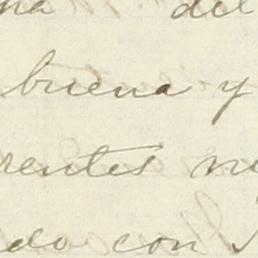 na del
buena y
rentes ne
do con